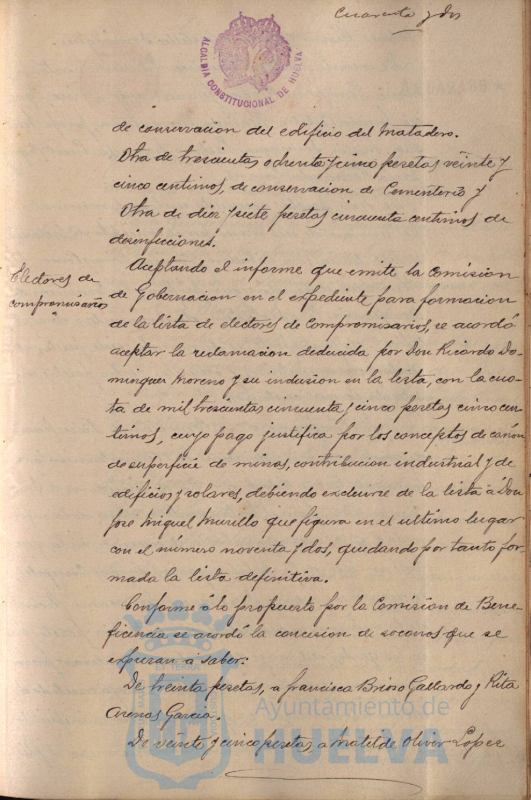 Cuarenta y dos
ALCALDIA CONSTITUCIONAL DE HUELVA
de conservacion del edificio del Matadero.
Otra de trescientas ochenta y cinco pesetas veinte y
cinco centimos, de conservacion de Cementerio y
Otra de diez y siete pesetas cincuenta centimos de
desinfecciones.
Electores de
compromisarios
Aceptando el informe que emite la Comision
de Gobernacion en el expediente para formacion
de la lista de electores de Compromisarios, se acordó
aceptar la reclamacion deducida por Don Ricardo Do-
minguez Moreno y su inclusion en la lista, con la cuo-
ta de mil trescientas cincuenta y cinco pesetas cinco cen-
timos, cuyo pago justifica por los conceptos de cánon
de superficie de minas, contribucion industrial y de
edificios y solares, debiendo excluirse de la lista á Don
José Miguel Murillo que figura en el ultimo lugar
con el número noventa y dos, quedando por tanto for-
mada la lista definitiva.
Conforme á lo propuesto por la Comision de Bene-
ficencia se acordó la concesion de socorros que se
expresan á saber:
De treinta pesetas, a Francisca Brioso Gallardo y Rita
Arenas Garcia.
De veinte y cinco pesetas a Matilde Oliver Lopez
Ayuntamiento de
HUELVA